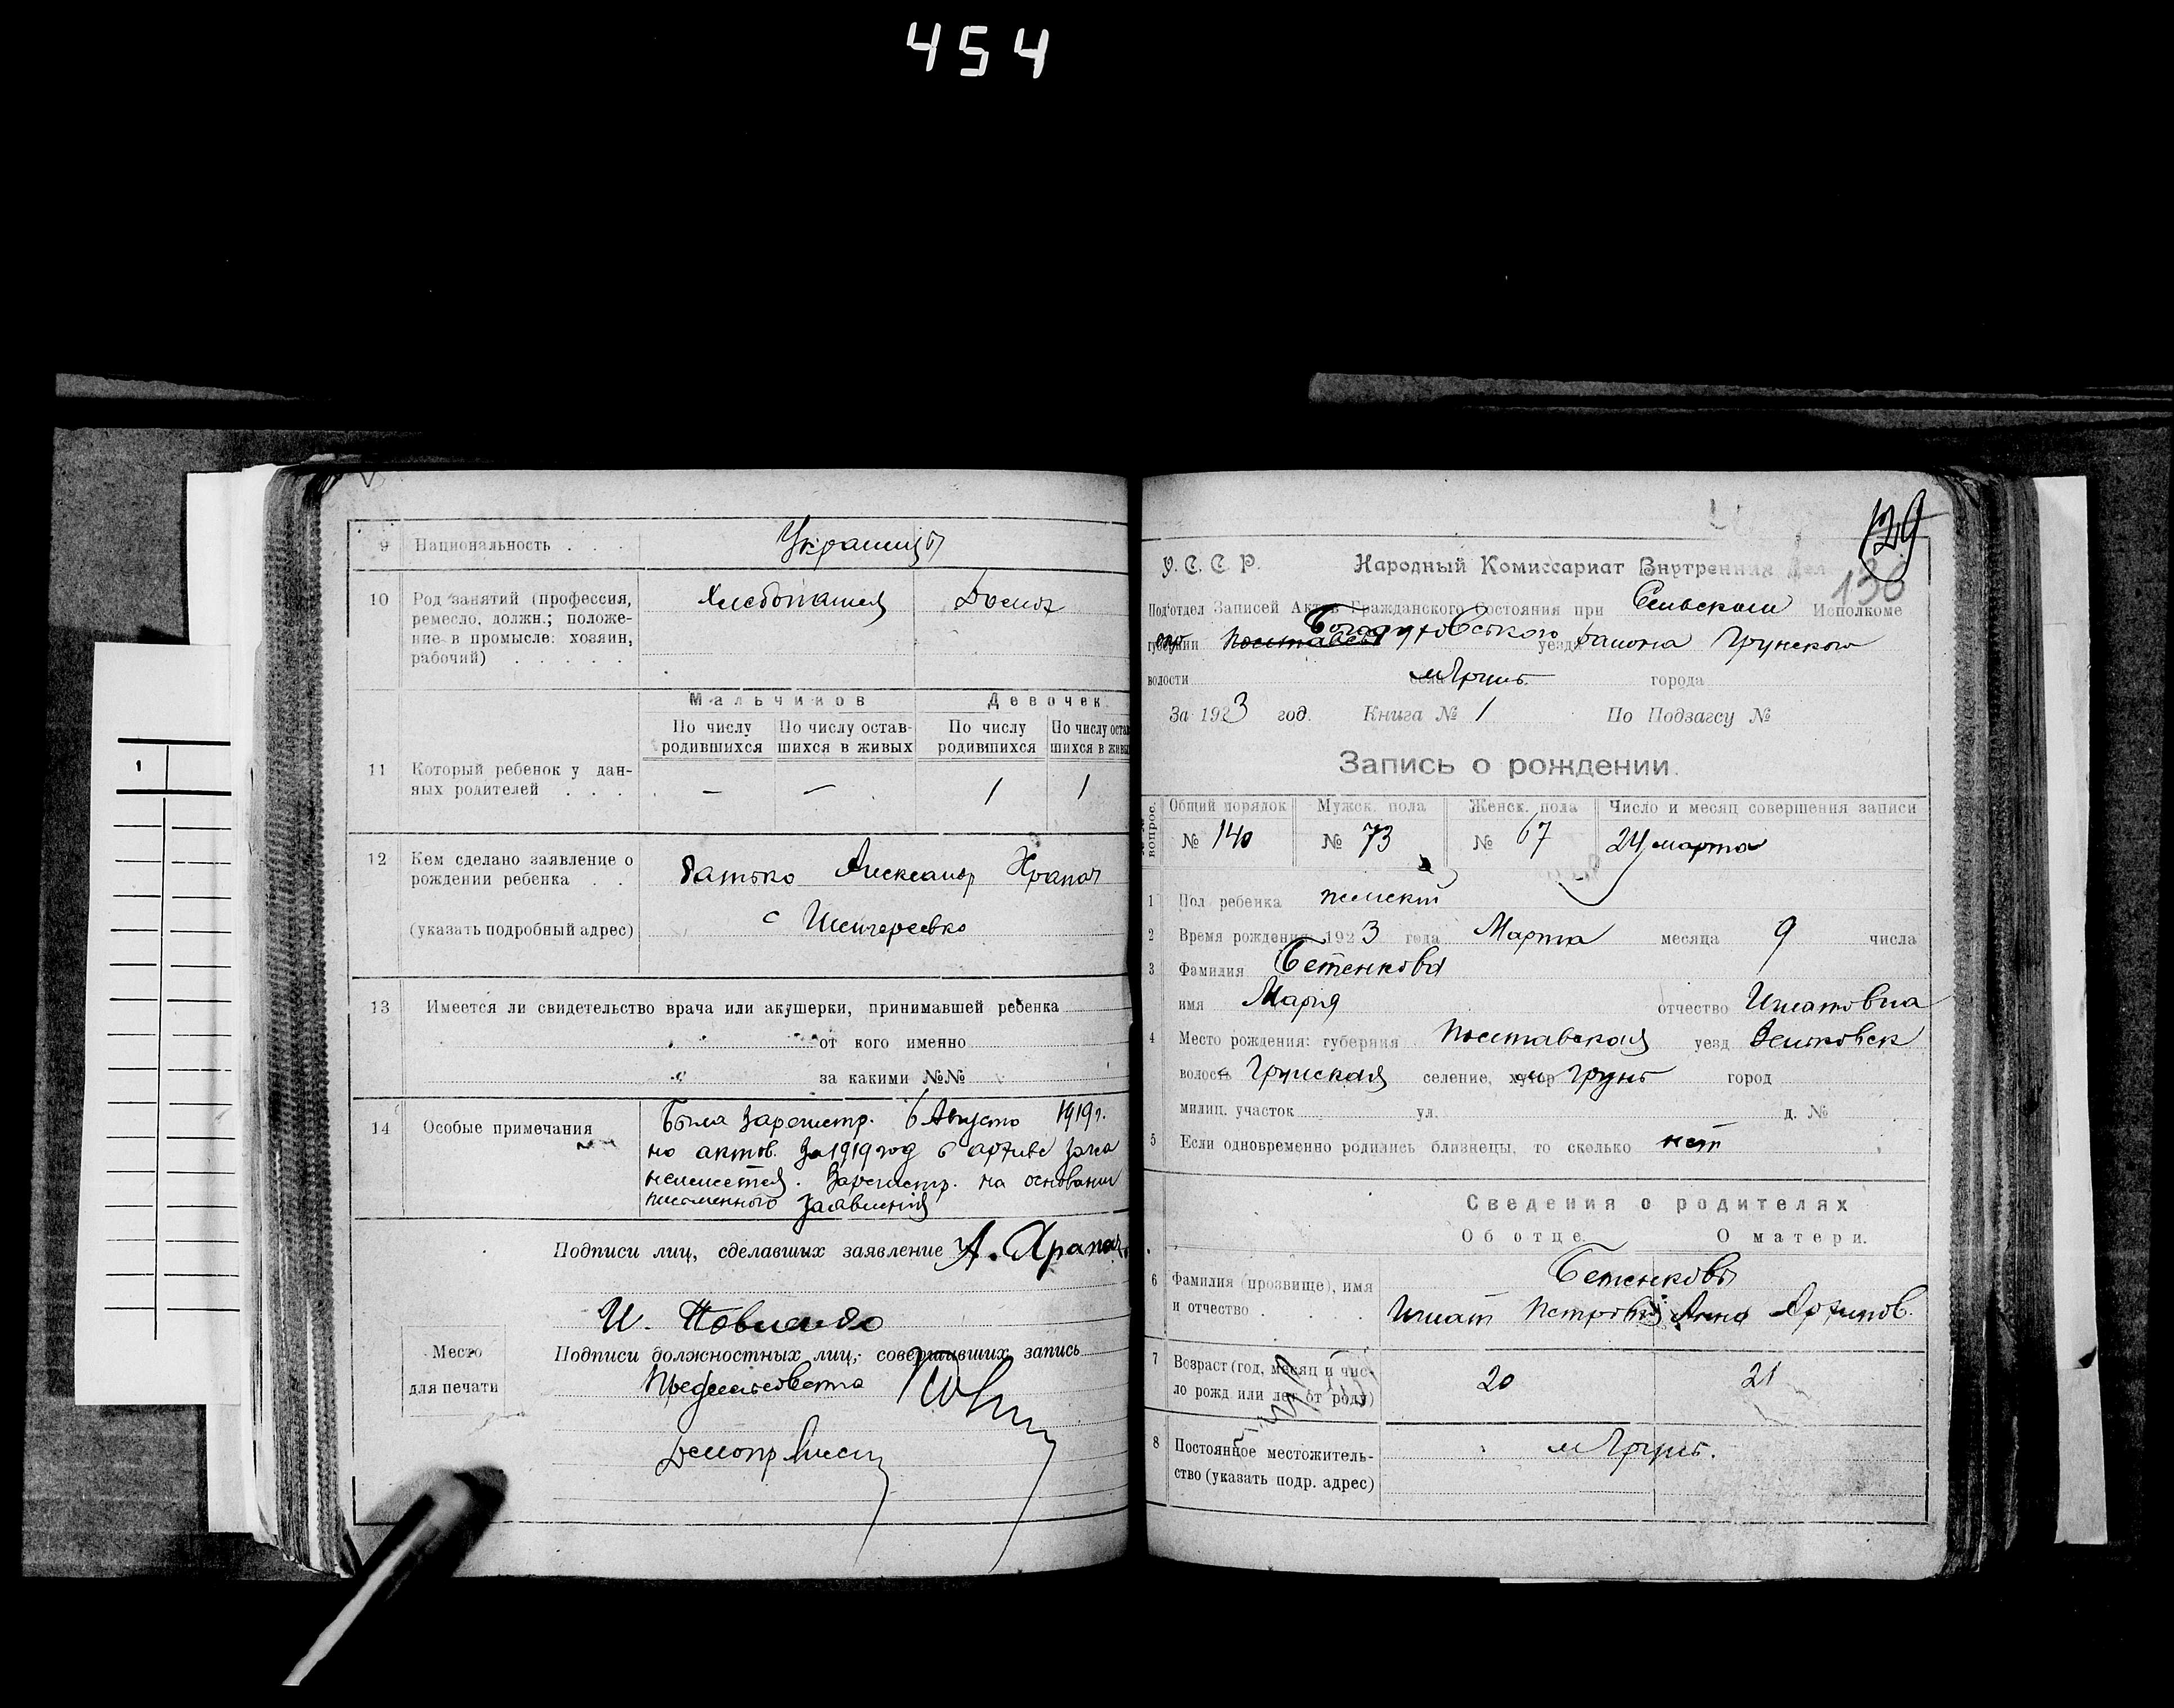 454
9 Национальность . . . Украинцы
10 Род занятий (профессия, Хлебопашец Домох
ремесло, должн.; положе-
ние в промысле: хозяин,
рабочий) . . . . .
Мальчиков Девочек
По числу родившихся По числу остав-шихся в живых По числу родившихся По числу остав шихся в живы
11 Который ребенок у дан-
ных родителей . . . — — 1 1
12 Кем сделано заявление о
рождении ребенка . . батько Александр Храпач
(указать подробный адрес) с
13 Имеется ли свидетельство врача или акушерки, принимавшей ребенка
" " от кого именно
" за какими №№
14 Особые примечания Была зарегистр. 6 Августа 1919 г.
но актов. за 1919 год в архиве загса
неимеется. Зарегистр. на основании
письменного заявления
Подписи лиц, сделавших заявление А. Храпач
И.
Место
для печати
Подписи должностных лиц, совершивших запись
Предсельсовета
129
130
У. С. С. Р. Народный Комиссариат Внутренних Дел
Под'отдел Записей Актов Гражданского Состояния при Сельском Исполкоме
Богодуховського
губернии Полтавськ уезда района Грунского
волости села м Грунь города
За 1923 год. Книга № 1 По Подзагсу №
Запись о рождении.
№№ вопрос. Общий порядок Мужск. пола Женск. пола Число и месяц совершения записи
№ 140 № 73 № 67 24 марта
1 Пол ребенка женский
2 Время рождения: 1923 года Марта месяца 9 числа
3 Фамилия Бетенкова
имя Мария отчество Игнатовна
4 Место рождения: губерния Полтавская уезд Зеньковск
волость Грунская селение, хутор м Грунь город
милиц. участок ул. д. №
5 Если одновременно родились близнецы, то сколько нет
Сведения о родителях
Об отце. О матери.
6 Фамилия (прозвище), имя Бетенковы
и отчество . Игнат Петровий Анна Архипов.
7 Возраст (год, месяц и чис-
ло рожд или лет от роду) 20 21
8 Постоянное местожитель- м Грунь.
ство (указать подр. адрес)
1